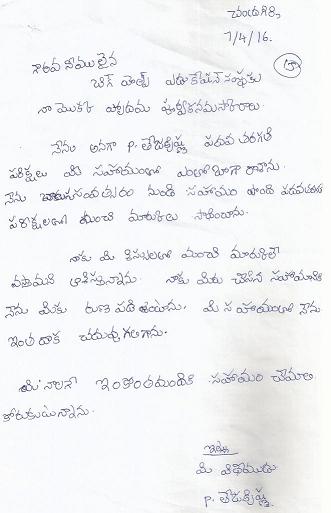 చంద్రగిరి,
7/4/16.
గౌరవనీయులైన
బిగ్ హెల్ప్ ఎడుకేషన్ సంస్థకు
నా యొక్క హృదయ పూర్వకనమస్కారాలు.
నేను అనగా P. తేజకృష్ణ పదవ తరగతి
పరీక్షలు మీ సహాయంతో ఎంతో బాగా రాశాను.
నేను సంవత్సరం నుండి సహాయం పొంది పదవతరగతి
పరీక్షలలో మంచి మార్కులు సాధించాను.
నాకు మీ మంచి మార్కులే
వస్తాయని ఆశిస్తున్నాను. నాకు మీరు చేసిన సహాయానికి
నేను మీకు రుణ పడి ఉంటాను. మీ సహాయంతో నేను
ఇంత దాక చదువ్వగలిగాను.
మీరు ఇలానే ఇంకొంతమందికి సహాయం చేయాలని
కోరుకుంటున్నాను.
ఇట్లు
మీ విధేయుడు
P. తేజకృష్ణ